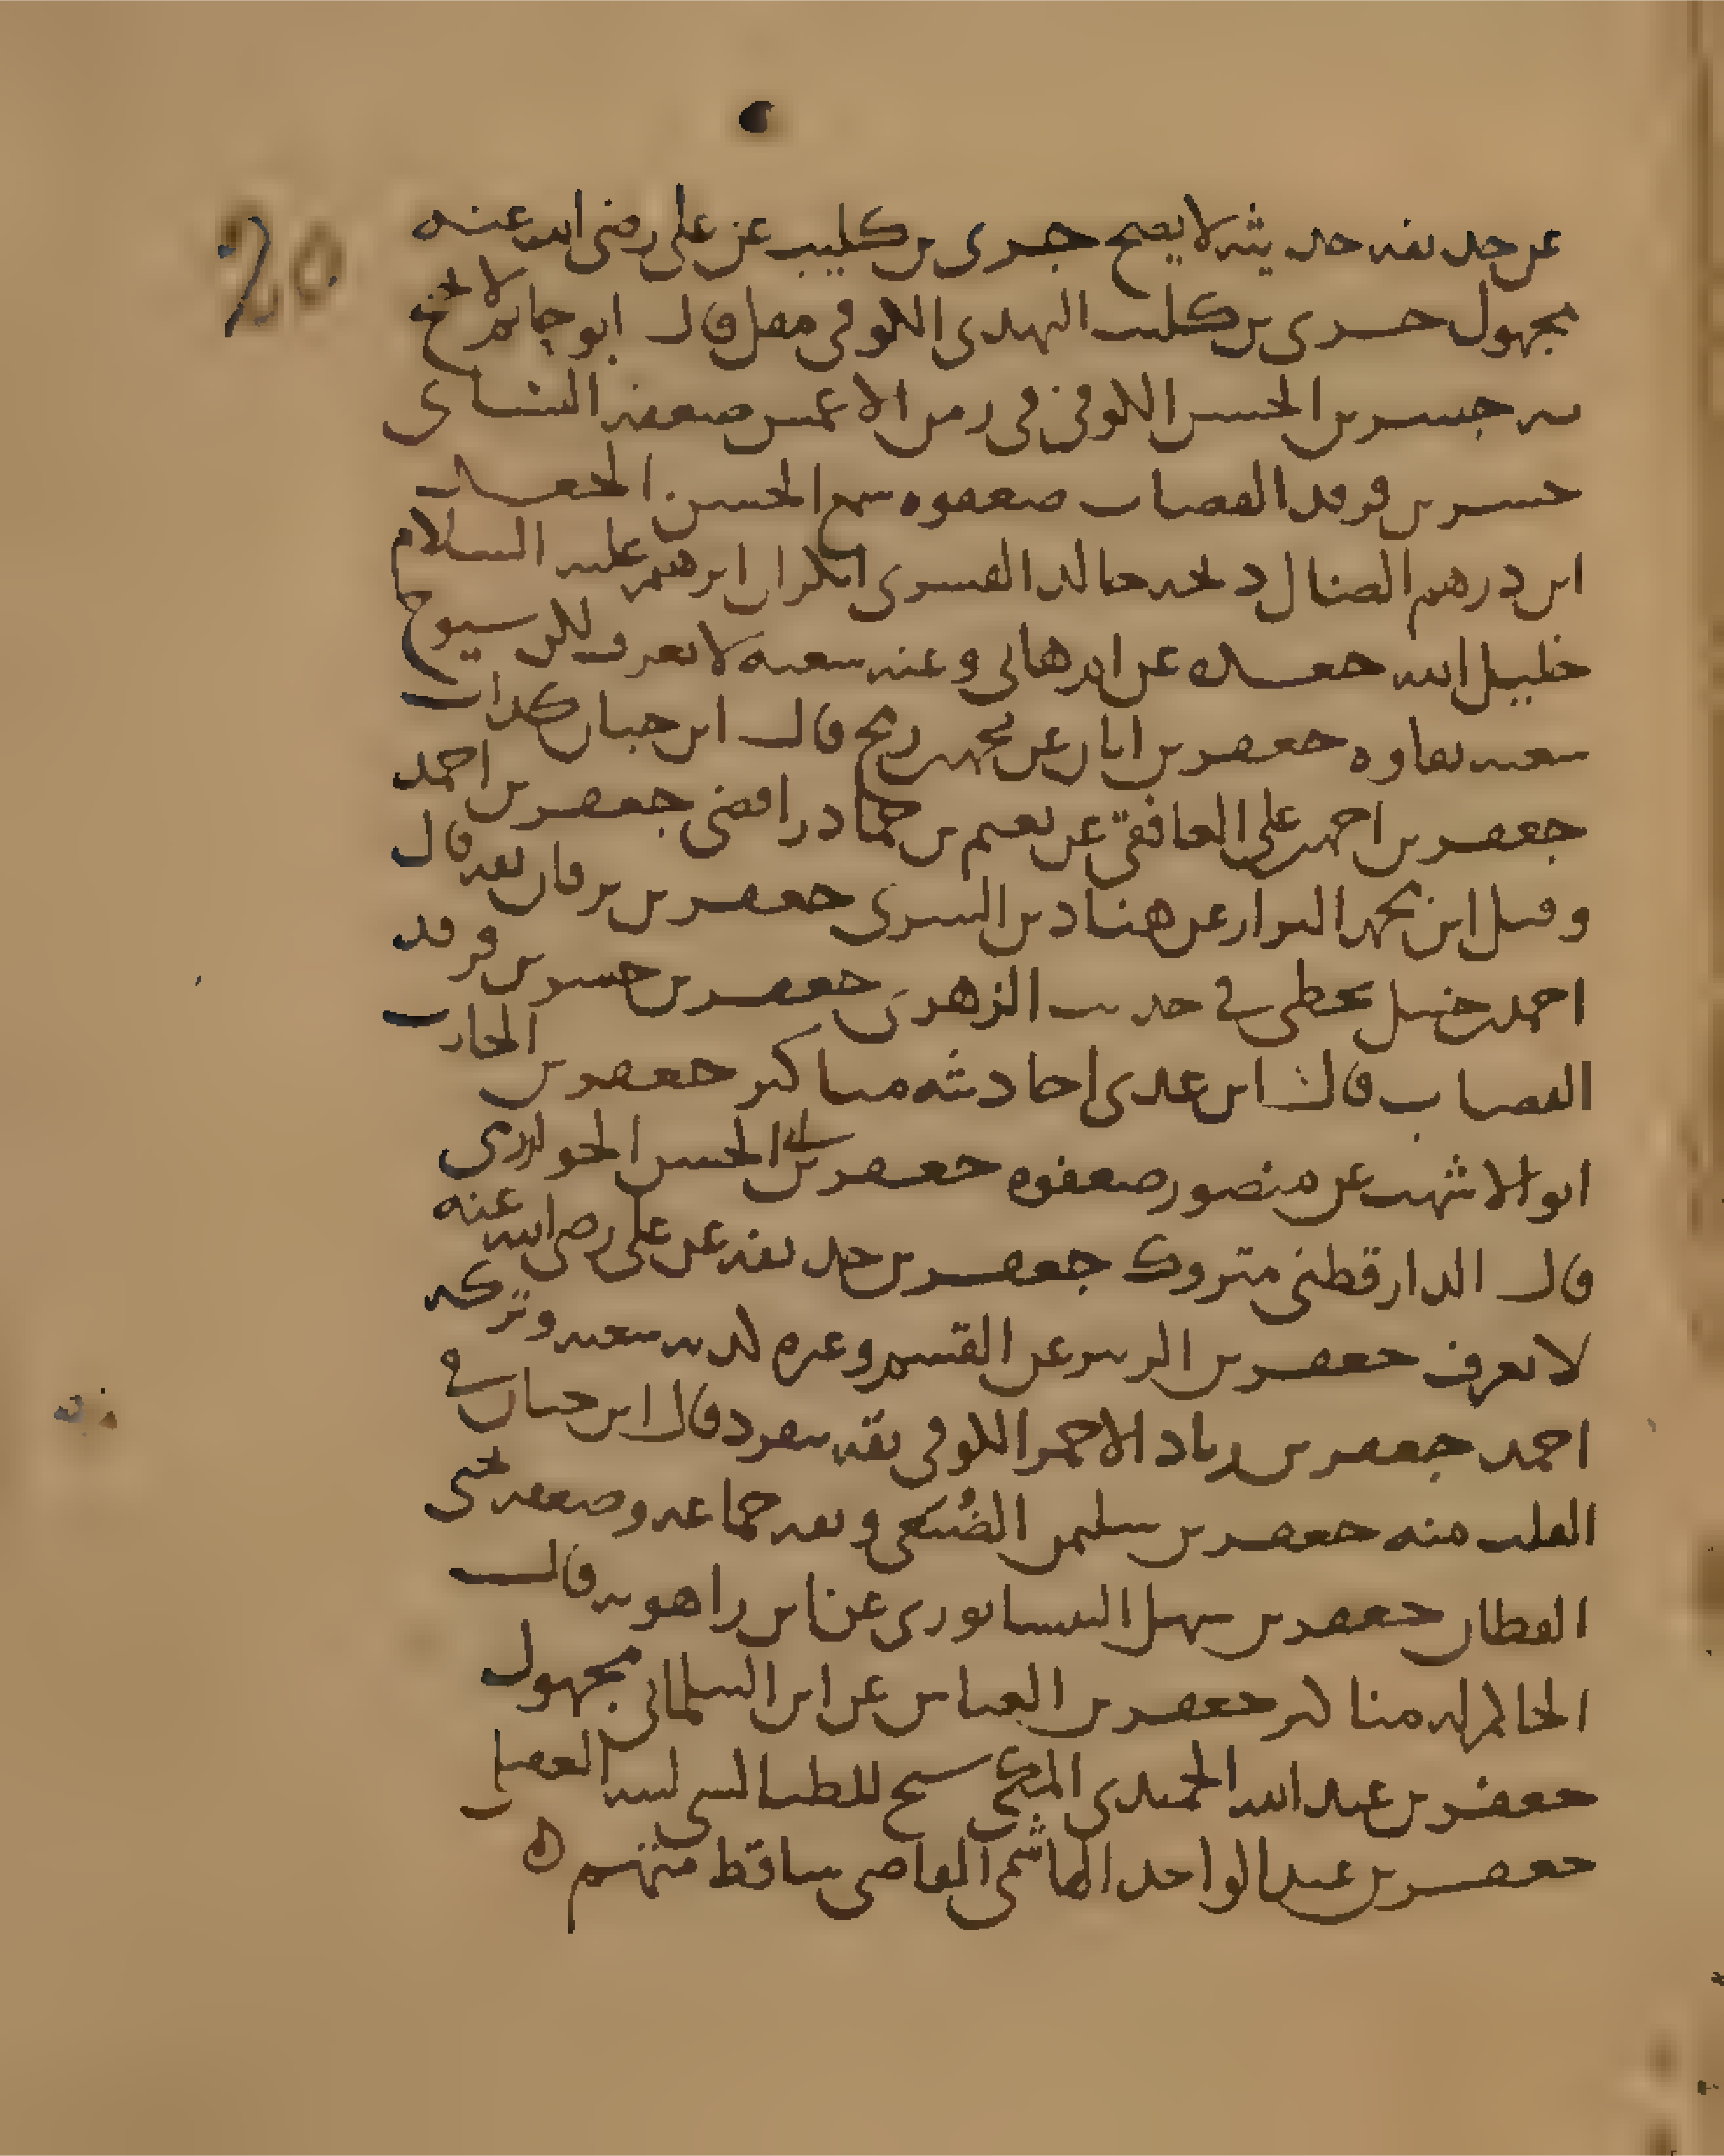 20
عن حذيفه حديثه لا يصح جرى بن كليب عن على رضى الله عنه
مجهول جرى بن كليب النهدى الكوفى مقل قال ابو حاتم لا يحتج
به جسر بن الحسن الكوفى فى زمن الاعمش ضعفه النسائى
جسر بن فرقد القصاب ضعفوه سمع الحسن الجعد
ابن درهم الضال ذبحه خالد القسرى انكر ان ابرهيم عليه السلام
خليل الله جعده عن ام هانى وعنه شعبه لا يعرف لكن شيوخ
شعبه نقاوه جعفر بن ابان عن محمد بن رمح قال ابن حبان كذاب
جعفر بن احمد بن على الغافقى عن نعيم بن حماد رافضى جعفر بن احمد
وقيل ابن محمد البزار عن هناد بن السرى جعفر بن برقان ثقه قال
احمد بن حنبل يخطى فى حديث الزهرى جعفر بن جسر بن فرقد
القصاب قال ابن عدى احاديثه مناكير جعفر بن الحارث
ابو الاشهب عن منصور ضعفوه جعفر بن ابى الحسن الخوارزمى
قال الدارقطنى متروك جعفر بن حذيفه عن على رضى الله عنه
لا يعرف جعفر بن الزبير عن القسم وغيره كذبه شعبه وتركه
احمد جعفر بن زياد الاحمر الكوفى ثقه ينفرد قال ابن حبان فى
القلب منه جعفر بن سليمن الضُبَعى وثقه جماعه وضعفه يحيى
القطان جعفر بن سهل النيسابورى عن ابن راهويه قال
الحاكم له مناكير جعفر بن العباس عن ابن البيلمانى مجهول
جعفر بن عبد الله الحميدى المكى شيخ للطيالسى لينه العقيلى
جعفر بن عبد الواحد الهاشمى القاضى ساقط متهم ه